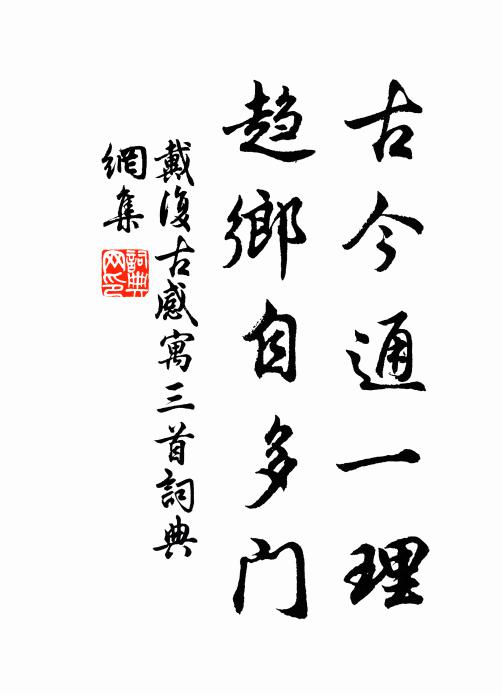 古今通一理
趋鄉自多门
戴復古感寓三首詞典
網集
詞典
网印